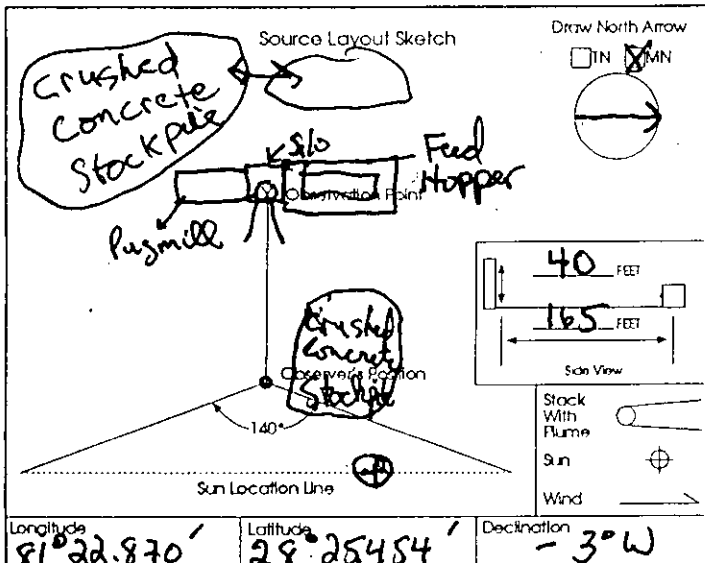 Source Layout Sketch
Draw North Arrow
TN MN
Crushed
Concrete
Stockpile
Silo
Feed
Hopper
Observation Point
Pugmill
40 FEET
165 FEET
Side View
Crushed
Concrete
Stockpile
Observer's Position
140°
Sun Location Line
Stack
With
Plume
Sun
Wind
Longitude
81° 22.870'
Latitude
28° 25.454'
Declination
- 3° W